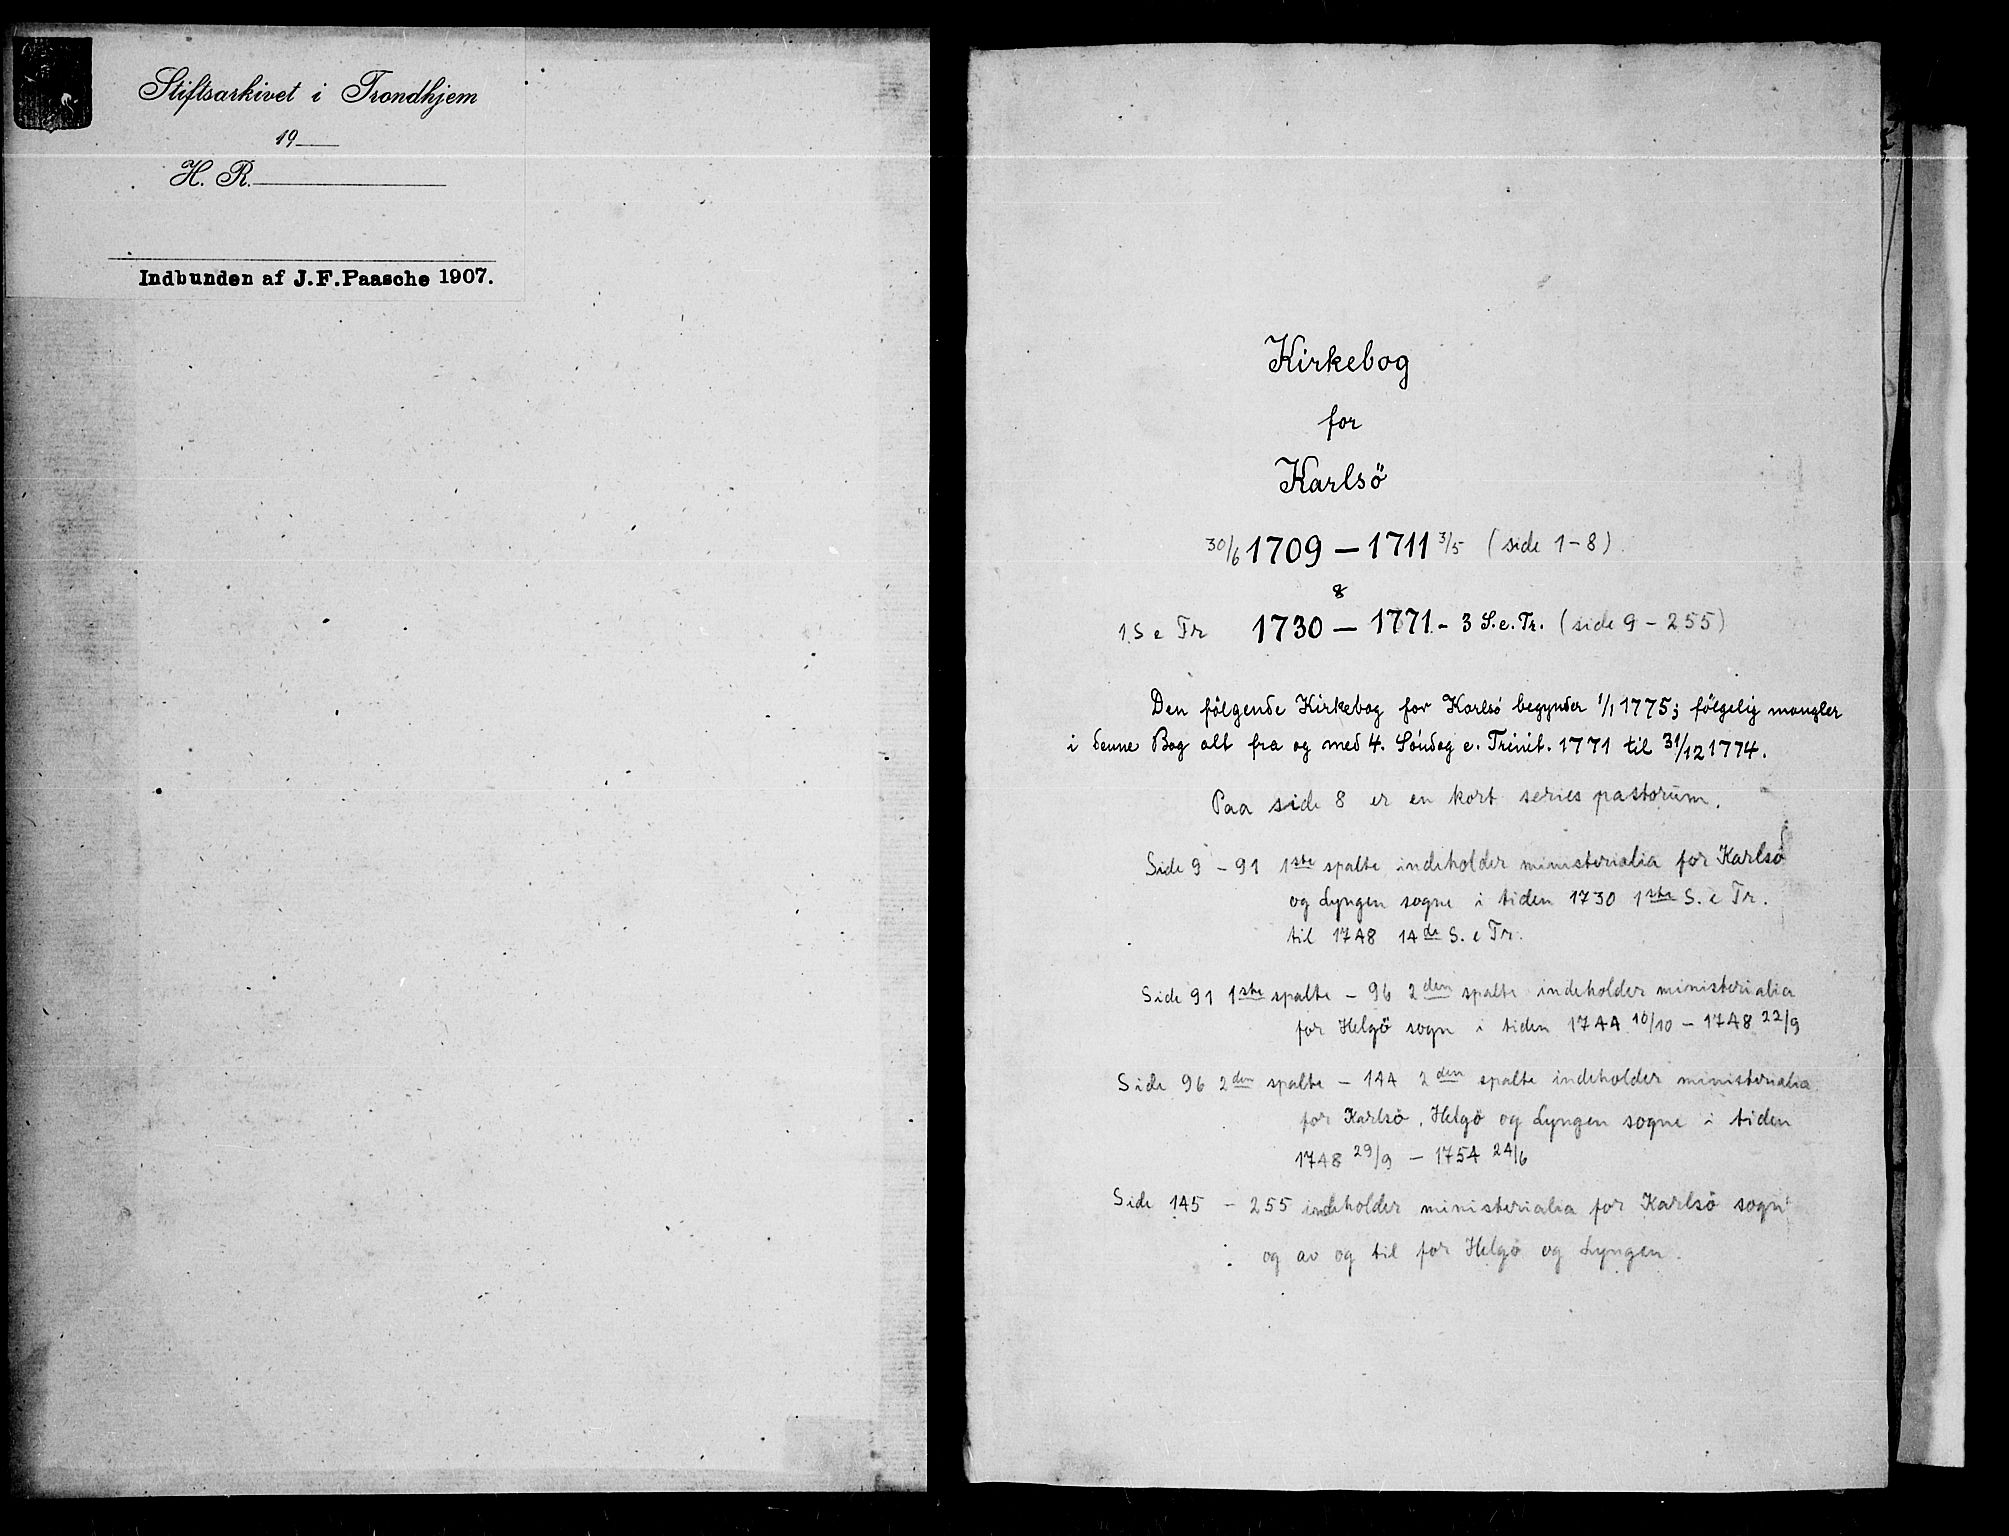 Stiftsarkivet i Trondhjem
19
H. R.
Indbunden af J. F. Paasche 1907.
Kirkebog
for
Karlsö
30/6 1709 — 1711 3/5 (side 1-8)
&
1 S e Tr 1730 — 1771 - 3 S. e. Tr. (side 9 - 255)
Den fölgende Kirkebog for Karlsö begynder 1/1 1775; fölgelig mangler
i denne Bog alt fra og med 4. Söndag e. Trinit. 1771 til 31/12 1774.
Paa side 8 er en kort series pastorum.
Side 9 - 91 1ste spalte indeholder ministerialia for Karlsö
og Lyngen sogne i tiden 1730 1ste S. e Tr.
til 1748 14de S. e Tr.
Side 91 1ste spalte - 96 2den spalte indeholder ministerialia
for Helgö sogn i tiden 1744 10/10 - 1748 22/9
Side 96 2den spalte - 144 2den spalte indeholder ministerialia
for Karlsö, Helgö og Lyngen sogne i tiden
1748 29/9 - 1754 24/6
Side 145 - 255 indeholder ministerialia for Karlsö sogn
og av og til for Helgö og Lyngen.